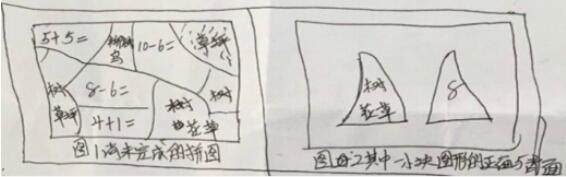 5+5=
10-6=
草
鸟
树
8-6=
树
草
4+1=
树
花草
图1尚未完成的拼图
树
花草
8
图2其中一小块图形的正面与背面